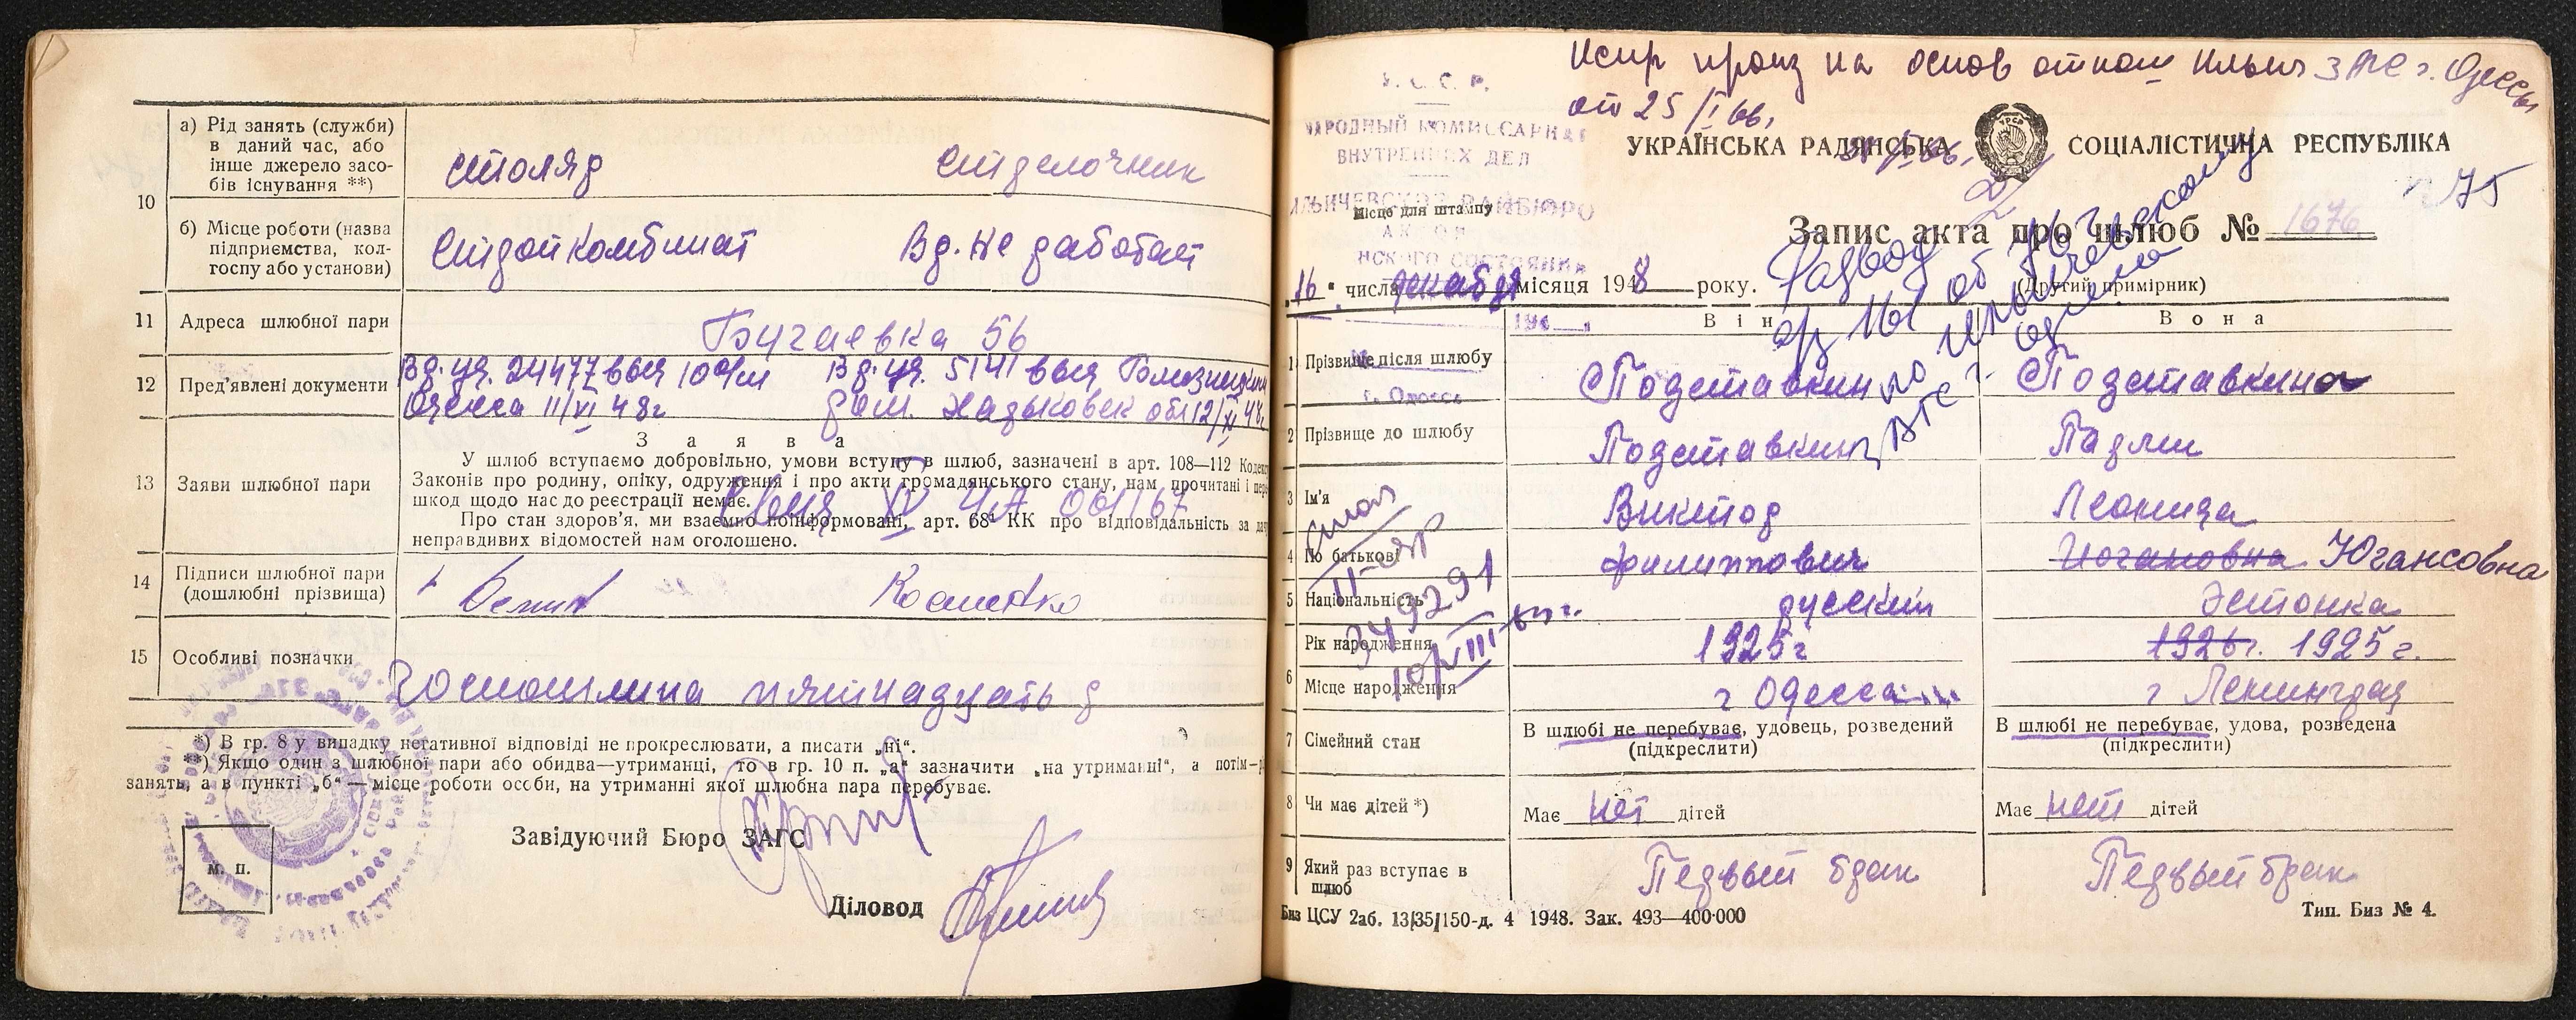 а) Рід занять (служби)
в даний час, або
інше джерело засо-
бів існування **)
столяр
Стрелочник
10
б) Місце роботи (назва
підприємства, кол-
госпу або установи)
Стройкомбинат
Вр. не работает
11
Адреса шлюбної пари
Бугаевка 56
12
Пред'явлені документи
Вр. уд. 24477 выд 10 о/м
Одесса 11/VI 48г
Вр. уд. 5141 выд
Харьковск обл 12/
З а я в а
13
Заяви шлюбної пари
У шлюб вступаємо добровільно, умови вступу в шлюб, зазначені в арт. 108—112 Кодекс
Законів про родину, опіку, одруження і про акти громадянського стану, нам прочитані і пере
шкод щодо нас до реєстрації немає.
Про стан здоров'я, ми взаємно поінформовані, арт. 68¹ КК про відповідальність за
неправдивих відомостей нам оголошено.
14
Підписи шлюбної пари
(дошлюбні прізвища)
15
Особливі позначки
Госпошлина пятнадцать р
*) В гр. 8 у випадку негативної відповіді не прокреслювати, а писати „ні“.
**) Якщо один з шлюбної пари або обидва—утриманці, то в гр. 10 п. „а“ зазначити „на утриманні“, а потім—р
занять, а в пункті „б“—місце роботи особи, на утриманні якої шлюбна пара перебуває.
Завідуючий Бюро ЗАГС
м. п.
Діловод
Испр произ на основ отнош Ильич ЗАГС г. Одессы
от 25/I 66.
У. С. С. Р.
НАРОДНЫЙ КОМИССАРИАТ
ВНУТРЕННИХ ДЕЛ
ИЛЬИЧЕВСКОЕ РАЙБЮРО
АКТОВ
НСКОГО СОСТОЯНИЯ
г. Одесса
Місце для штампу
УКРАЇНСЬКА РАДЯНСЬКА
УРСР
СОЦІАЛІСТИЧНА РЕСПУБЛІКА
75
Запис акта про шлюб № 1676
(Другий примірник)
„16“ числа декабря місяця 1948 року.
Развод
ар 1161 об
по Ильичевскому
ЗАГС г.
Одесса
Він
Вона
1
Прізвище після шлюбу
Подставкин
Подставкина
2
Прізвище до шлюбу
Подставкин
3
Ім'я
Виктор
Леонида
4
По батькові
Филиппович
Иогановна Югансовна
II-ЯР
349291
10/VIII-
5
Національність
русский
Эстонка
Рік народження
1925г
1926г. 1925г.
6
Місце народження
г Одесса
г Ленинград
7
Сімейний стан
В шлюбі не перебуває, удовець, розведений
(підкреслити)
В шлюбі не перебуває, удова, розведена
(підкреслити)
8
Чи має дітей *)
Має нет дітей
Має нет дітей
9
Який раз вступає в
шлюб
Первый брак
Первый брак
Биз ЦСУ 2аб. 13/35/150-д. 4 1948. Зак. 493—400·000
Тип. Биз № 4.